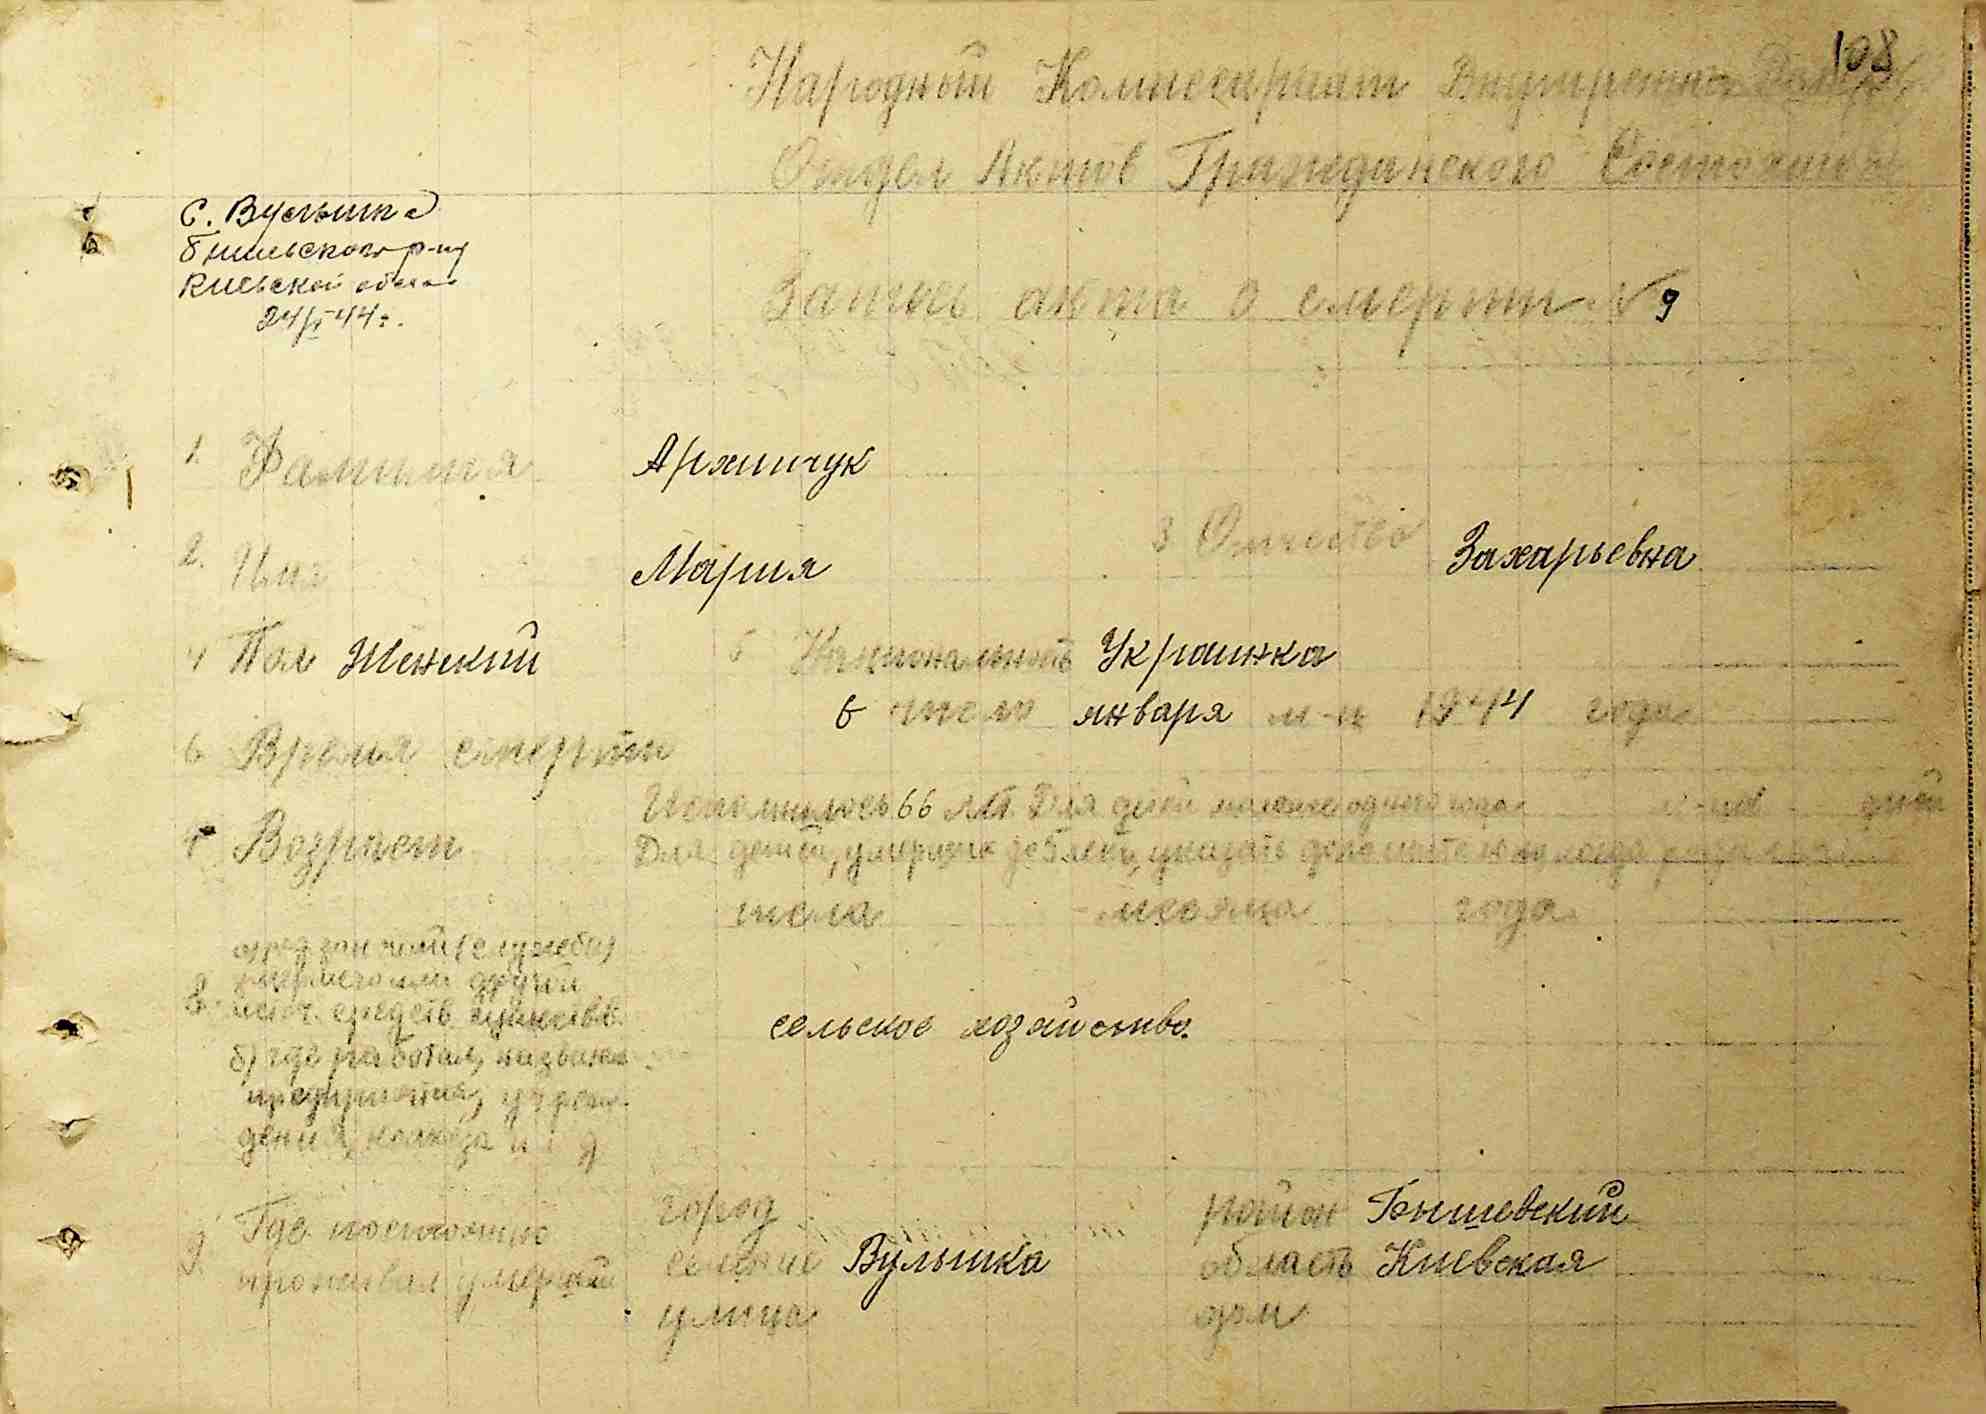 108
Народный Комисариат Внутренних Дел
Отдел Актов Гражданского Состояния
с.
р-на
Киевской области
24/I 44 г.
Запись акта о смерти № 9
1. Фамилия Архипчук
2. Имя Мария 3 Отчество Захарьевна
4 Пол Женский 5 Национальность Украинка
6 Время смерти 6 число января м-ц 1944 года
7 Возраст Исполнилось 66 лет Для детей моложе одного года м-цев дней
Для детей, умерших до 5 лет, указать дополнительно когда родился
числа месяца года
8. а) род занятий (службы)
умершего или другой
источ. средств
б) где работал, название
предприятия, учреж-
дения, колхоза и т д
сельское хозяйство.
9. Где постоянно
проживал умерший
город район Бышевский
селение Вульшка область Киевская
улица дом